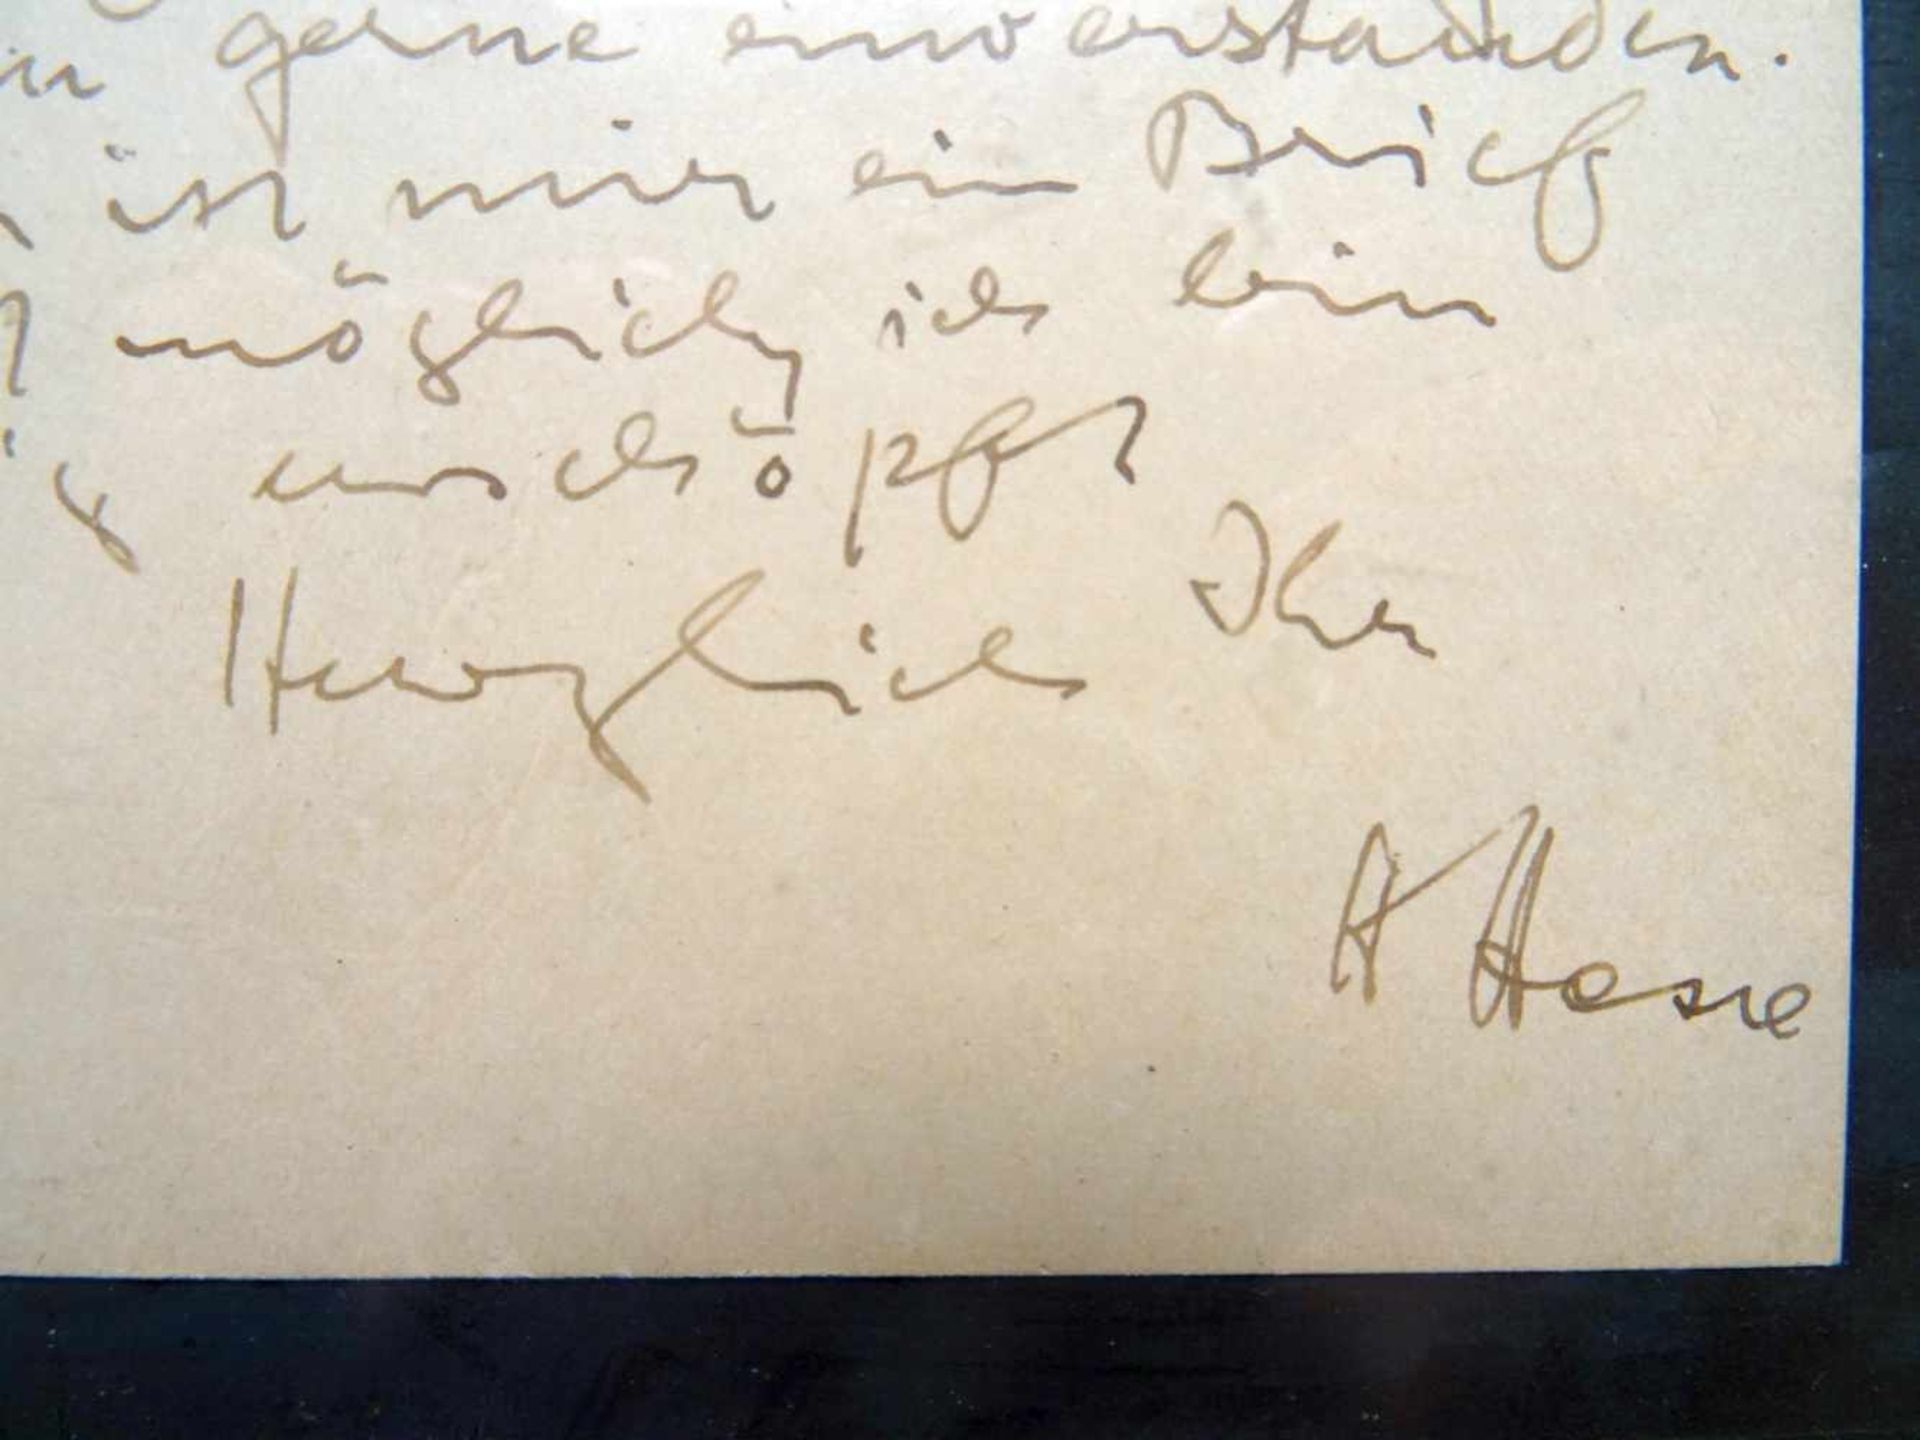 gerne einverstanden.
ist mir ein Brief
möglich, ich bin
erschöpft
Herzlich Ihr
H Hesse